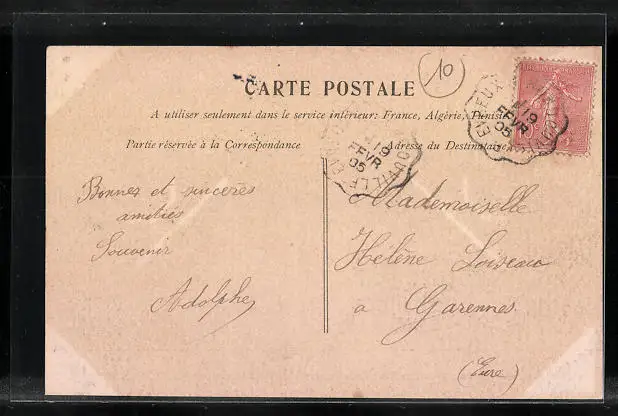 CARTE POSTALE
10
A utiliser seulement dans le service intérieur: France, Algérie, Tunisie
Partie réservée à la Correspondance
Adresse du Destinataire
19
FEVR
05
EVREUX
19
FEVR
05
Bonnes et sincères
amitiés
Souvenir
Adolphe
Mademoiselle
Hélène Loiseau
a Garennes
(Eure)